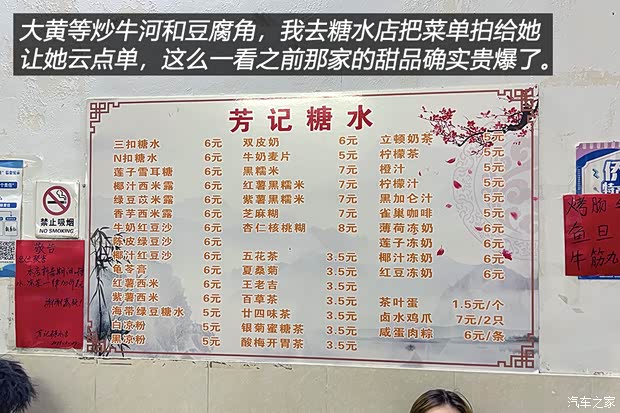 大黄等炒牛河和豆腐角，我去糖水店把菜单拍给她
让她云点单，这么一看之前那家的甜品确实贵爆了。
芳记糖水
三扣糖水 6元
N扣糖水 6元
莲子雪耳糖 6元
椰汁西米露 6元
绿豆苡米露 6元
香芋西米露 6元
牛奶红豆沙 6元
陈皮绿豆沙 6元
椰汁红豆沙 6元
龟苓膏 6元
红薯西米 6元
紫薯西米 6元
海带绿豆糖水 6元
白凉粉 5元
黑凉粉 5元
双皮奶 6元
牛奶麦片 5元
黑糯米 7元
红薯黑糯米 7元
紫薯黑糯米 7元
芝麻糊 7元
杏仁核桃糊 8元
五花茶 3.5元
夏桑菊 3.5元
王老吉 3.5元
百草茶 3.5元
廿四味茶 3.5元
银菊蜜糖茶 3.5元
酸梅开胃茶 3.5元
立顿奶茶 5元
柠檬茶 5元
橙汁 5元
柠檬汁 5元
黑加仑汁 5元
雀巢咖啡 5元
薄荷冻奶 6元
莲子冻奶 6元
椰汁冻奶 6元
红豆冻奶 6元
茶叶蛋 1.5元/个
卤水鸡爪 7元/2只
咸蛋肉粽 6元/条
禁止吸烟
NO SMOKING
敬告
牛筋丸
汽车之家